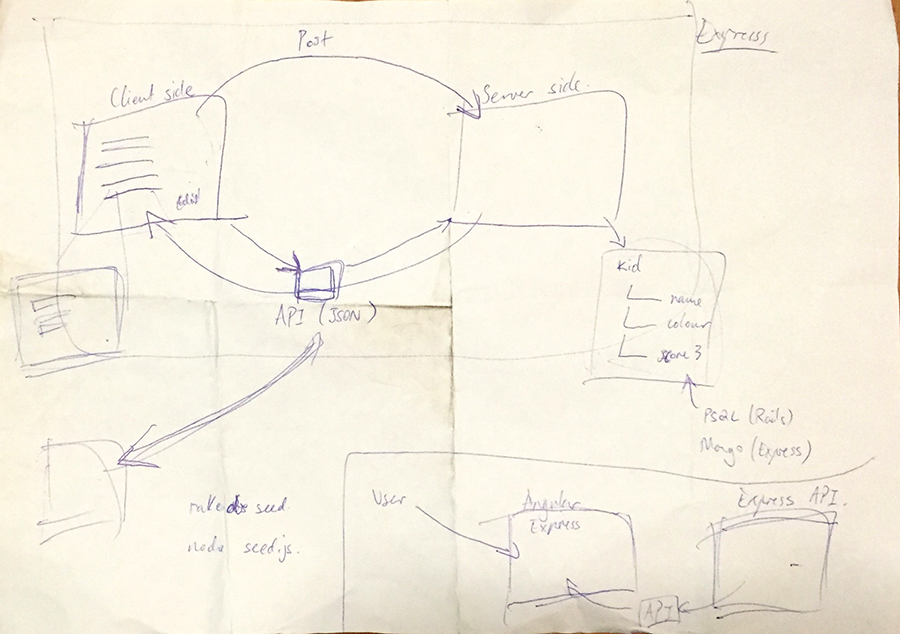 Express
Post
Client side
Server side.
edit
Kid
name
colour
score 3
API (JSON)
PSQL (Rails)
Mongo (Express)
rake db seed.
node seed.js.
User
Angular
Express
Express API.
API